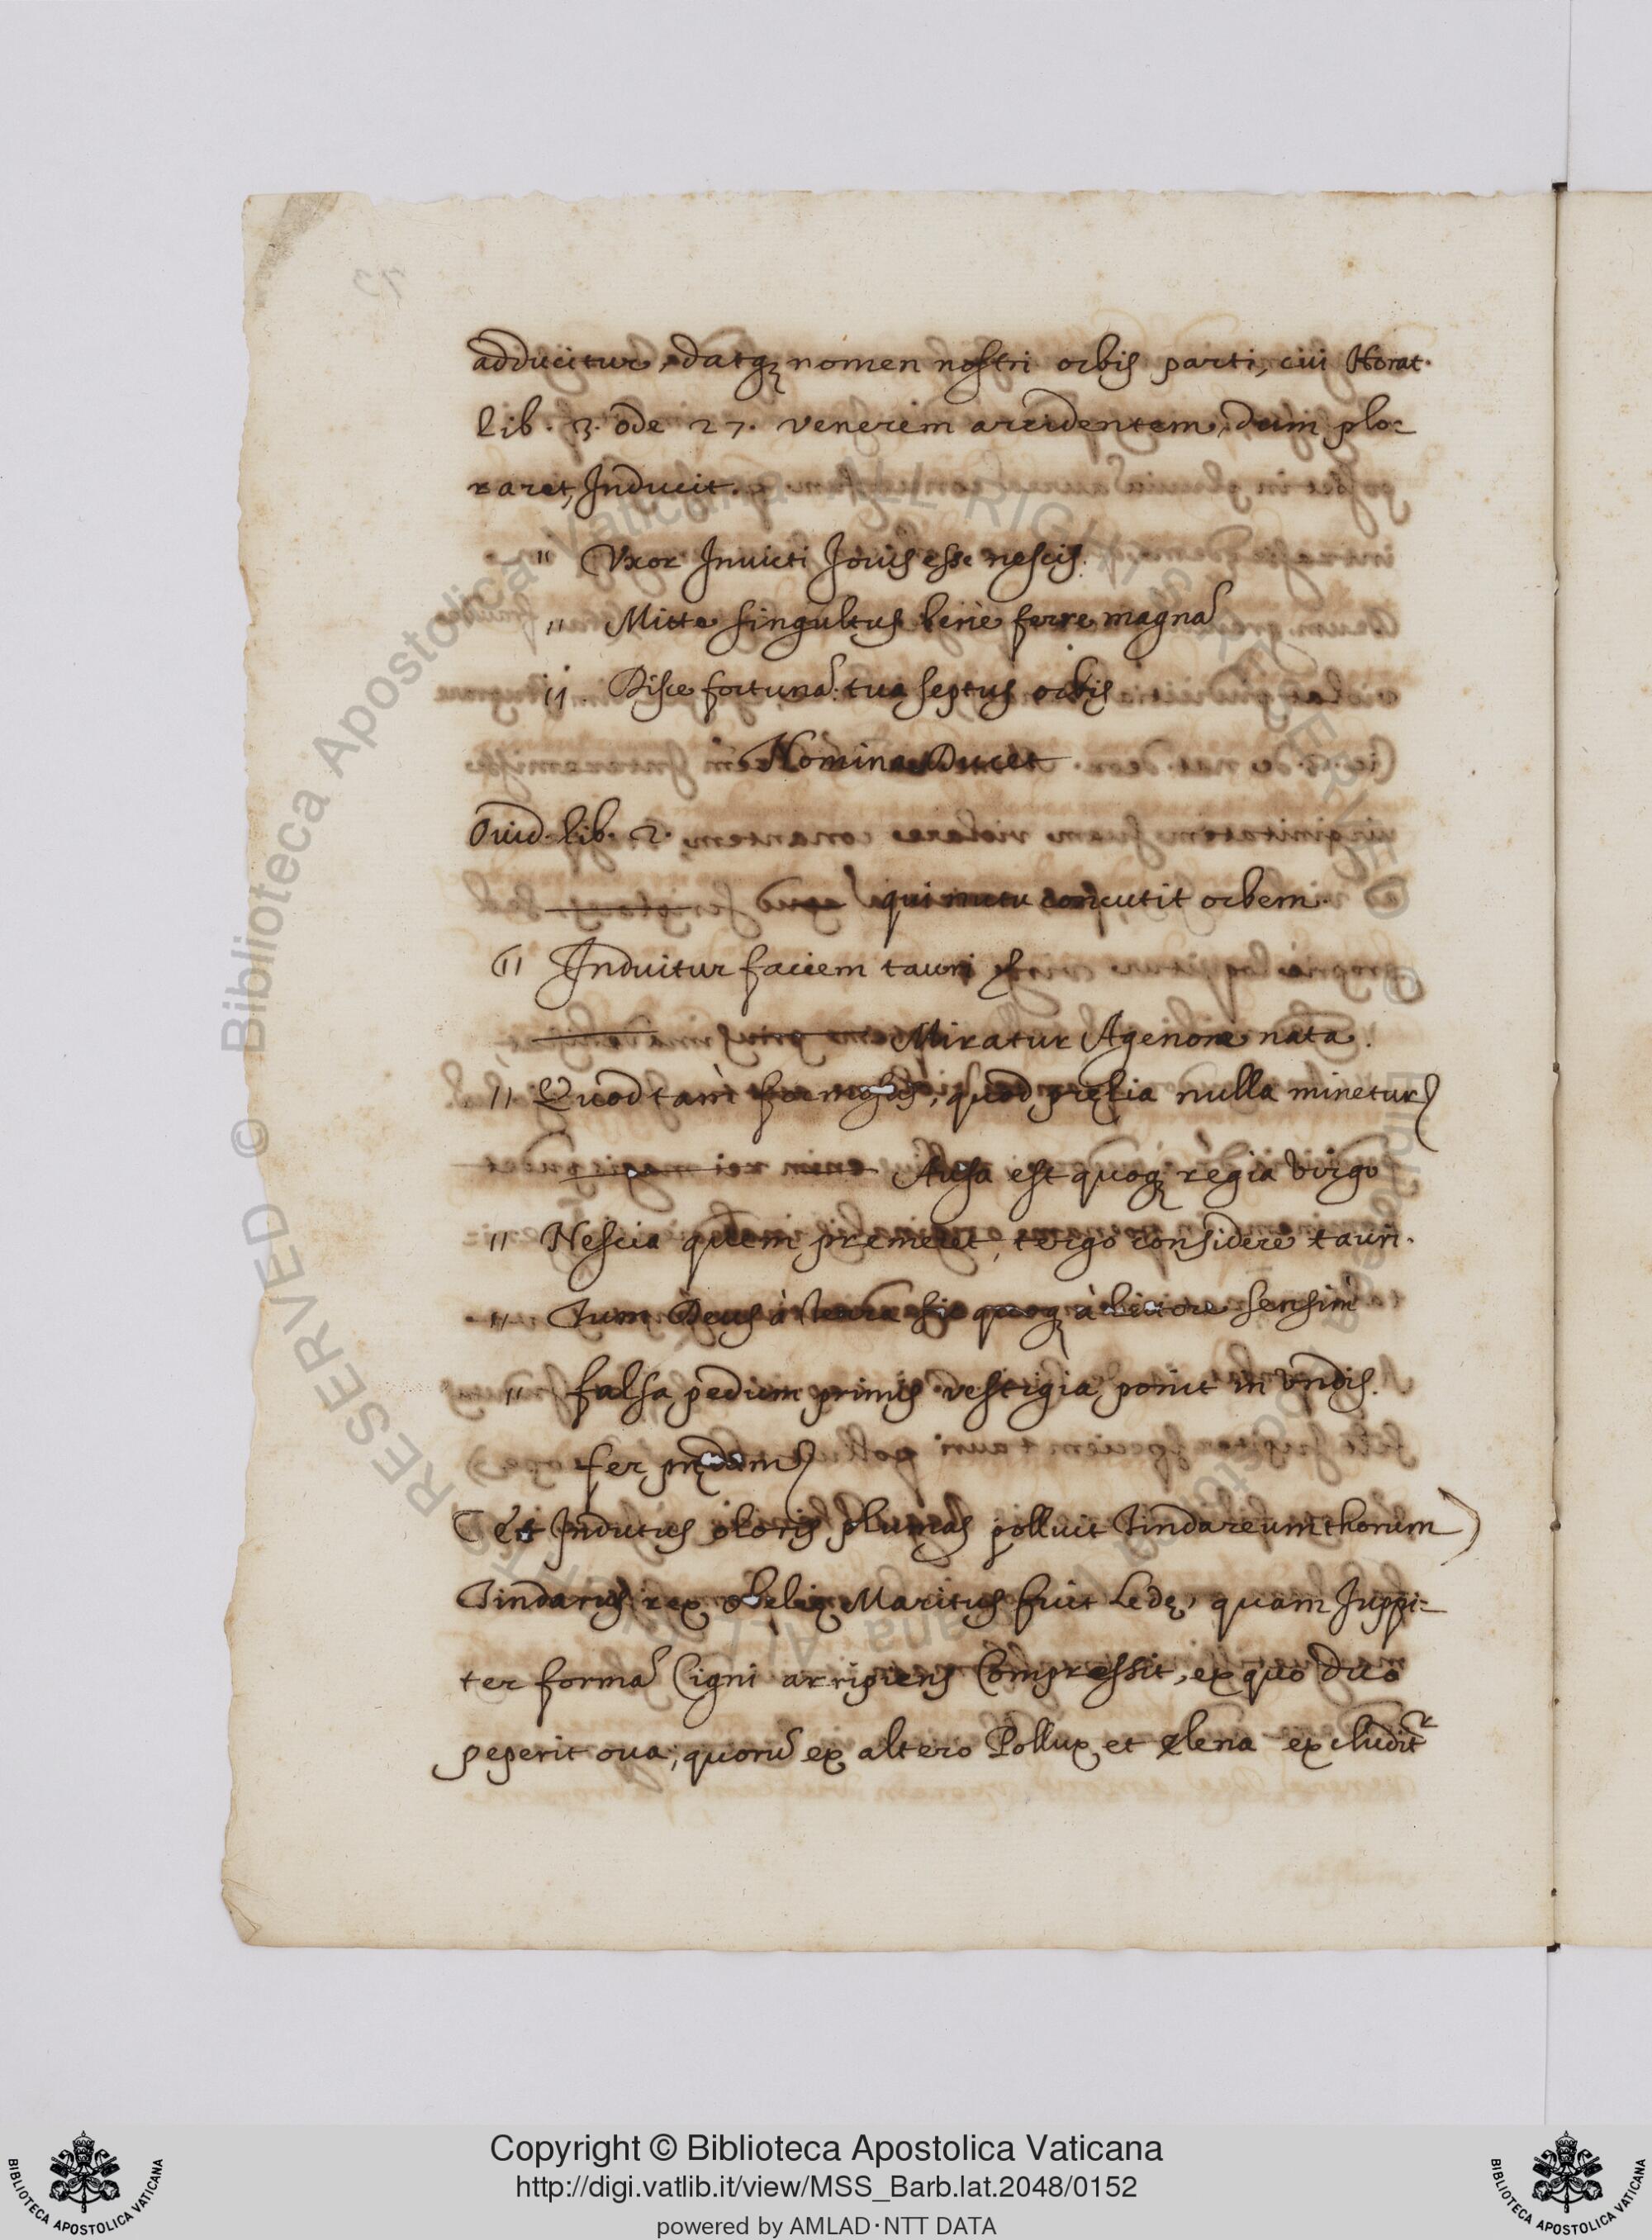 adducitur, datqꝫ nomen nostri orbis parti, cui Horat.
lib. 3. ode 27. venerem arridentem, dum plo-
raret, Inducit.
" Vxor Inuicti Iouis esse nescis.
" Mitte singultus benè ferre magnã
" Disce fortunã: tua septus orbis
Nomina Ducet
Ouid. lib. 2.
qui nutu concutit orbem.
" Induitur faciem tauri
Miratur Agenore nata.
" Quod tam formosus, quod pręlia nulla minetur
Ausa est quoqꝫ regia virgo
" Nescia quem premeret, tergo considere tauri.
" Tum Deus à terra à littore sensim
" falsa pedum primis vestigia ponit in vndis.
fer prędam
Et Indutus oloris plumas polluit Tindareum thorum
Tindarus rex Maritus fuit Ledę, quam Iuppi-
ter formã Cigni arripiens Compressit, ex quo duo
peperit oua, quorũ ex altero Pollux et elena excluditr
Copyright © Biblioteca Apostolica Vaticana
http://digi.vatlib.it/view/MSS_Barb.lat.2048/0152
powered by AMLAD·NTT DATA